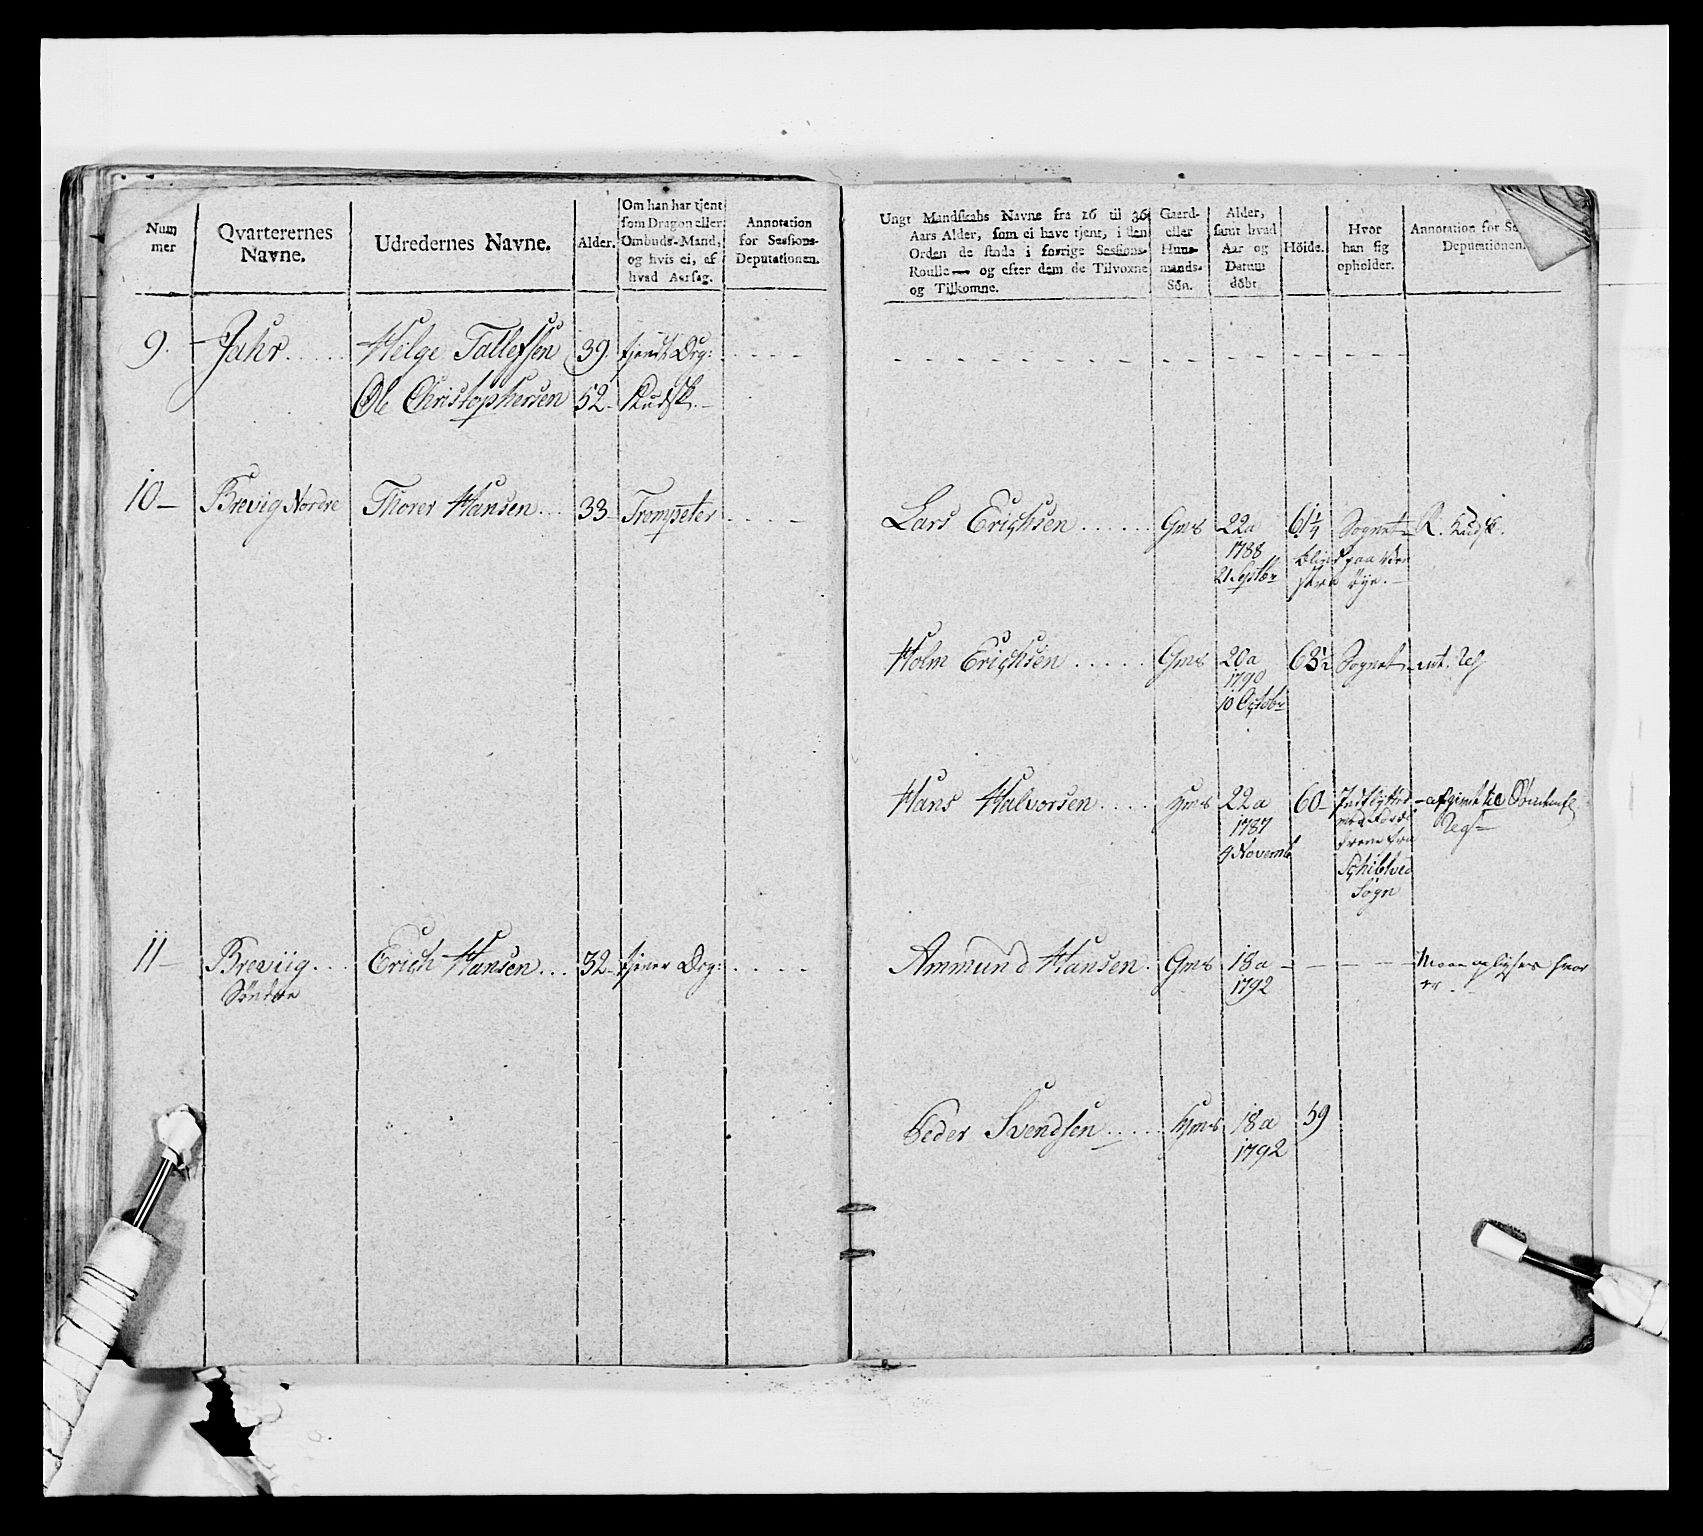 Num
mer
Qvarterernes
Navne.
Udredernes Navne.
Alder.
Om han har tjent
som Dragon eller
Ombuds-Mand,
og hvis ei, af
hvad Aarsag.
Annotation
for Sessions-
Deputationen.
9. Jahr Helge Tallefsen 39 tjent Drg:
Ole Christophersen 52 Kudsk.
10 Brevig Nordre Thorer Hansen 33 Trompeter
11 Breviig Erich Hansen 32 tjener Drg:
Söndre
Ungt Mandskabs Navne fra 16 til 36
Aars Alder, som ei have tjent, i den
Orden de stode i forrige Sessions-
Roulle — og efter dem de Tilvoxne
og Tilkomne.
Gaard-
eller
Huus-
mands-
Søn.
Alder,
samt hvad
Aar og
Datum
døbt.
Höide.
Hvor
han sig
opholder.
Annotation for Se
Deputationen.
Lars Erichsen Gms 22a 61¼ Sognet R. Kudsk.
1788 blind paa
21 Septbr øye.
Holm Erichsen Gms 20a 63½ Sognet
1790
10 Octobr
Hans Halvorsen Hms 22a 60 Indflyttet afgivet til
1787 med
9 Novemb fra
Schibtved
Sogn
Ammund Hansen Gms 18a Maae oplyses hvor
1792 er
Peder Svendsen Hms 18a 59
1792